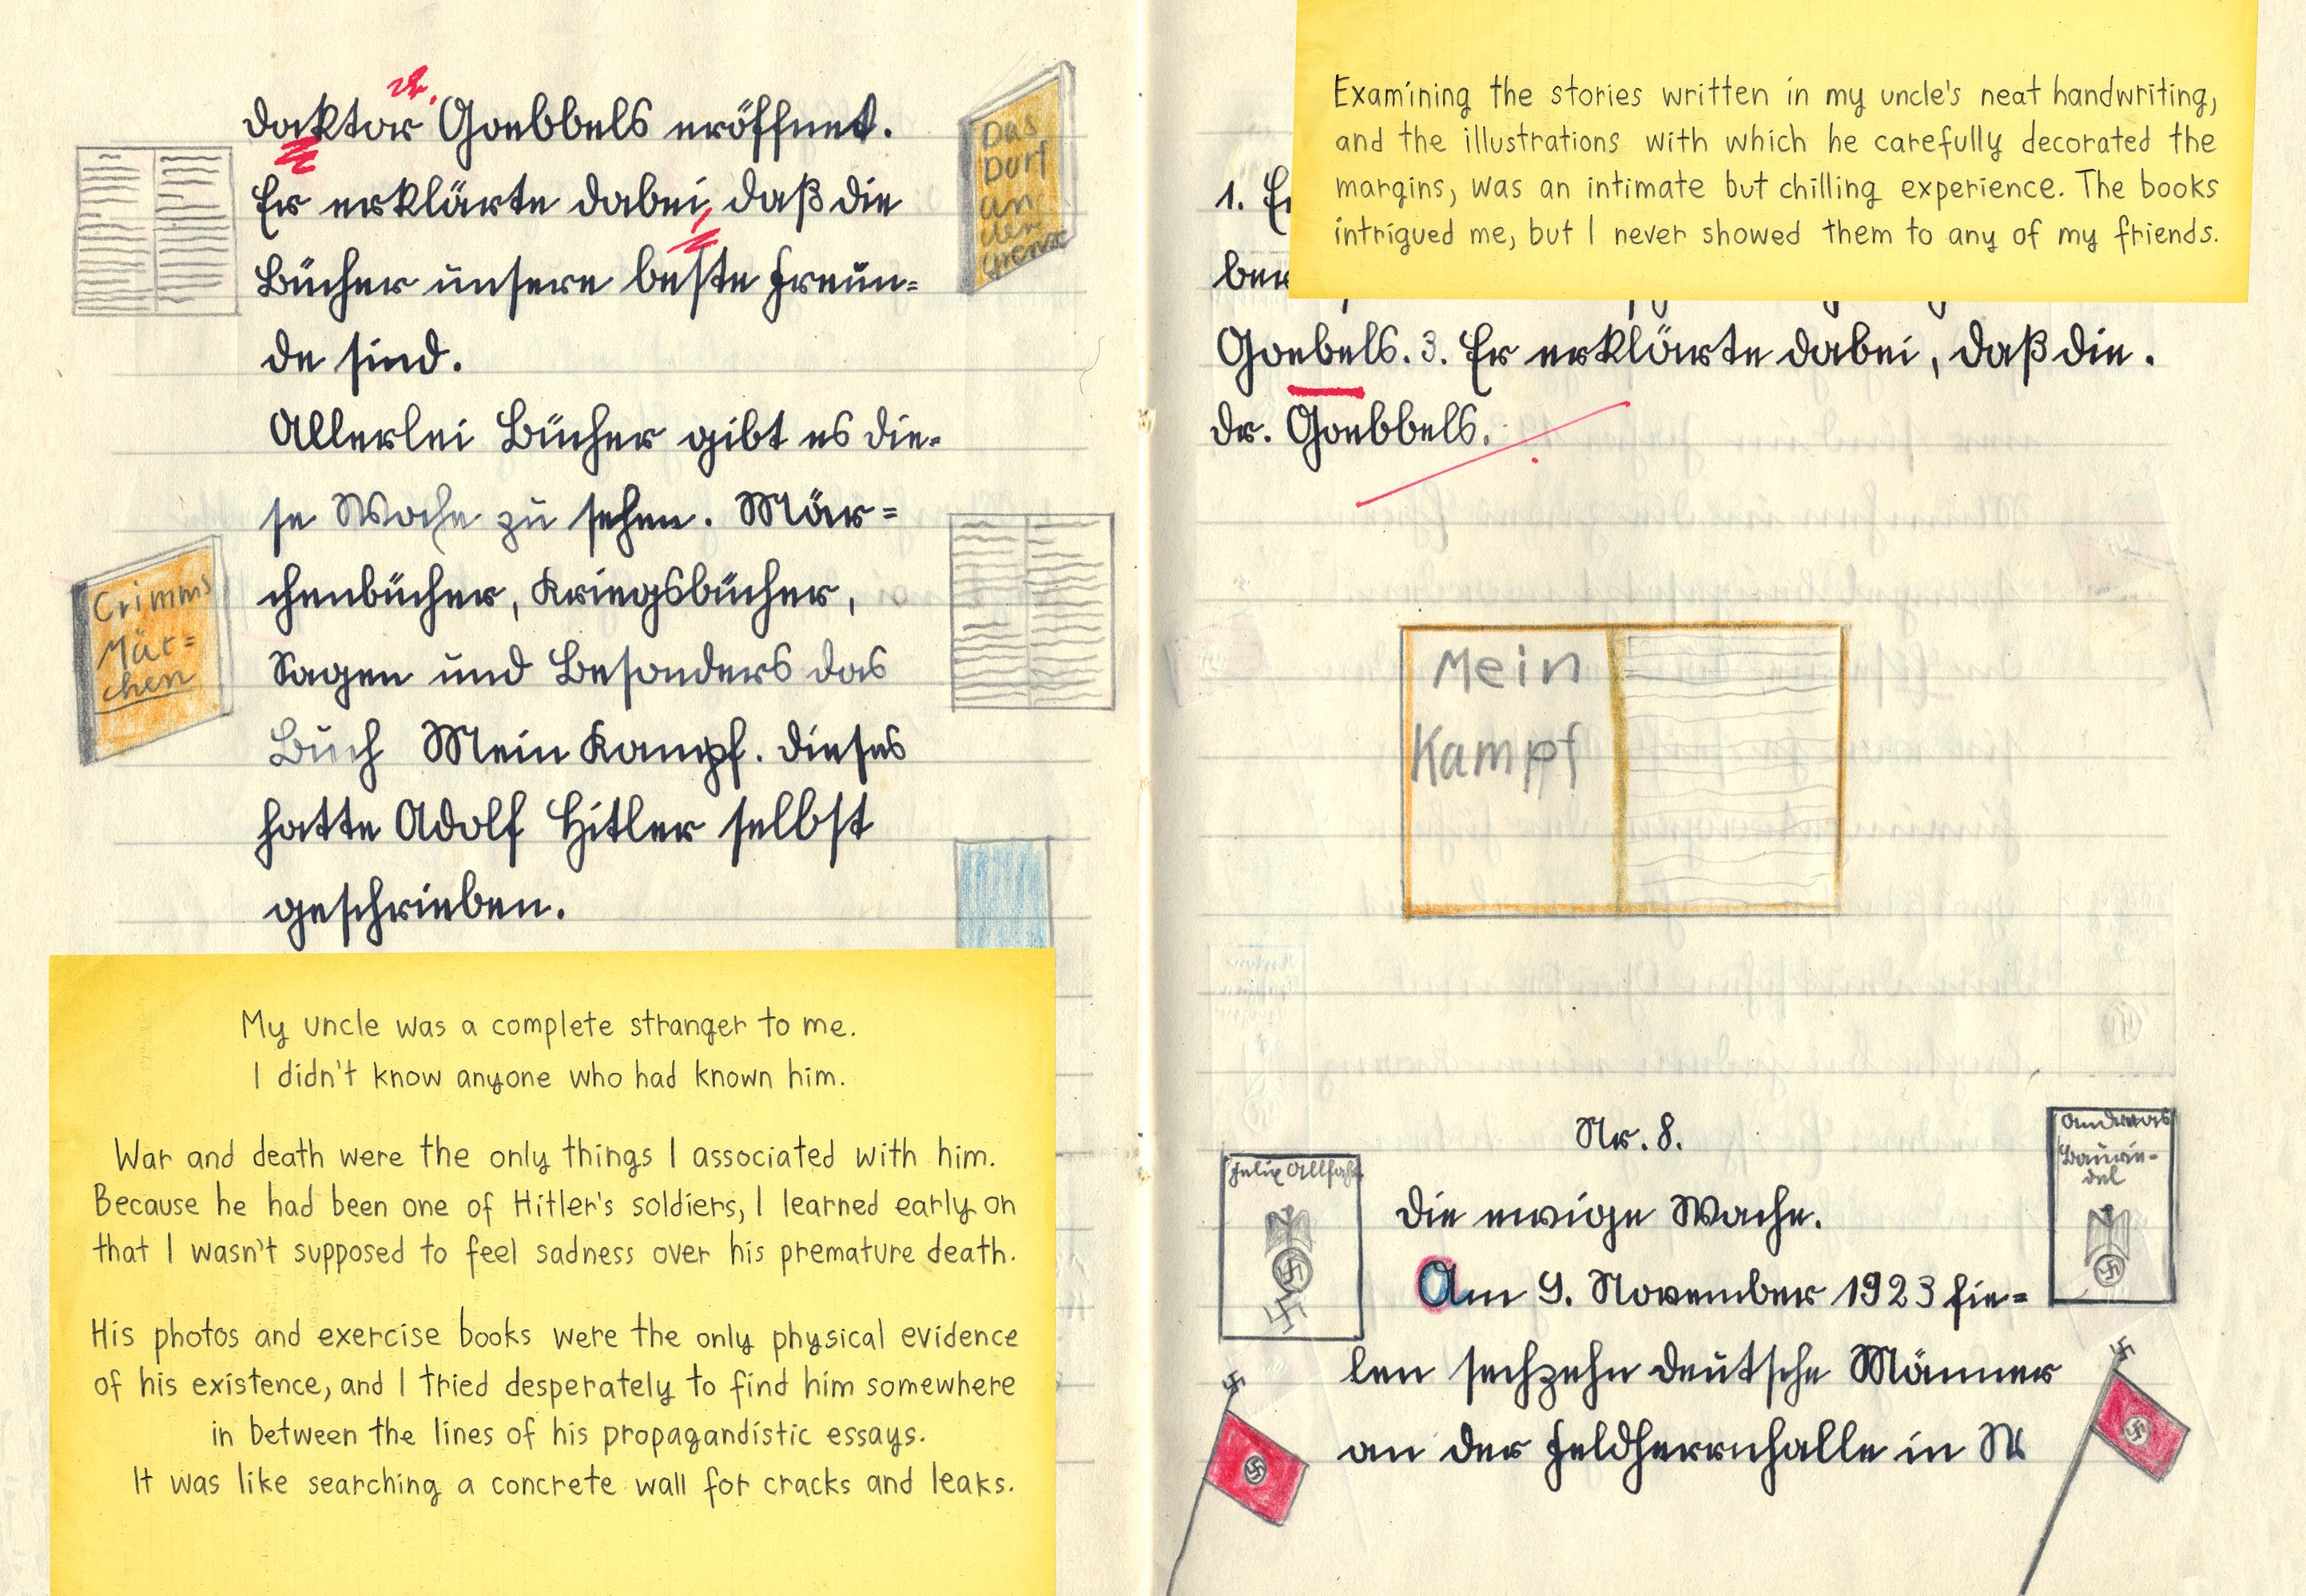 dr.
daktor Goebbels eröffnet.
Er erklärte dabei, daß die
Bücher unsere beste Freun=
de sind.
Allerlei Bücher gibt es die=
se Woche zu sehen. Mär=
chenbücher, Kriegsbücher,
Sagen und Besonders das
Buch Mein Kampf. dieses
hatte Adolf Hitler selbst
geschrieben.
Das
Dorf
an
der
Grenze
Crimms
Mär=
chen
My uncle was a complete stranger to me.
I didn't know anyone who had known him.
War and death were the only things I associated with him.
Because he had been one of Hitler's soldiers, I learned early on
that I wasn't supposed to feel sadness over his premature death.
His photos and exercise books were the only physical evidence
of his existence, and I tried desperately to find him somewhere
in between the lines of his propagandistic essays.
It was like searching a concrete wall for cracks and leaks.
Examining the stories written in my uncle's neat handwriting,
and the illustrations with which he carefully decorated the
margins, was an intimate but chilling experience. The books
intrigued me, but I never showed them to any of my friends.
1.
ber
Goebels. 3. Er erklärte dabei, daß die.
dr. Goebbels.
Mein
Kampf
Nr. 8.
Felix Allfah
Andreas
Baurie-
del
die ewige Wache.
Am 9. November 1923 fie=
len sechzehn deutsche Männer
an der Feldherrnhalle in M